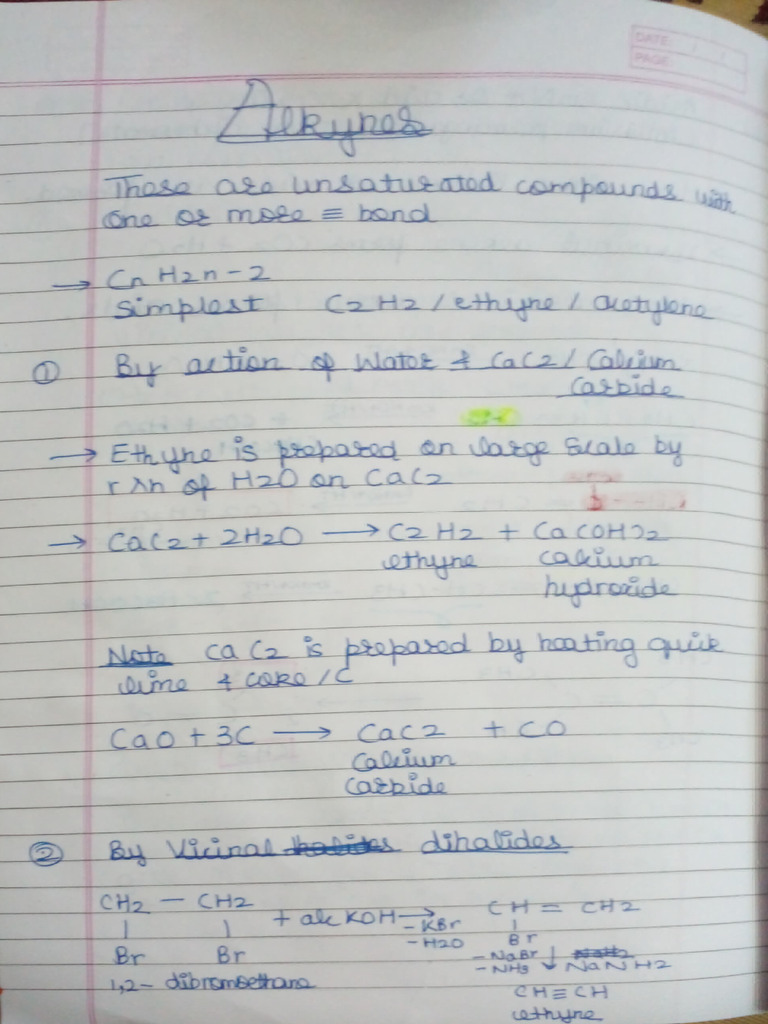 DATE
PAGE
Alkynes
These are unsaturated compounds with
one or more ≡ bond
→ CnH2n-2
simplest C2H2 / ethyne / acetylene
① By action of Water & CaC2 / Calcium
carbide
→ Ethyne is prepared on large scale by
rxn of H2O on CaC2
→ CaC2 + 2H2O → C2H2 + Ca(OH)2
ethyne calcium
hydroxide
Note CaC2 is prepared by heating quick
lime & coke / C
CaO + 3C → CaC2 + CO
Calcium
carbide
② By Vicinal halides dihalides
CH2 — CH2 + alc KOH → CH = CH2
| | - KBr |
Br Br - H2O Br
1,2- dibromoethane - NaBr ↓ NaNH2
- NH3 NaNH2
CH≡CH
ethyne